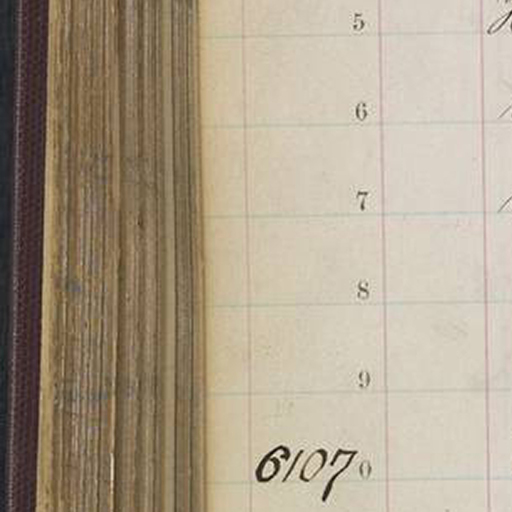 5
6
7
8
9
6107 0